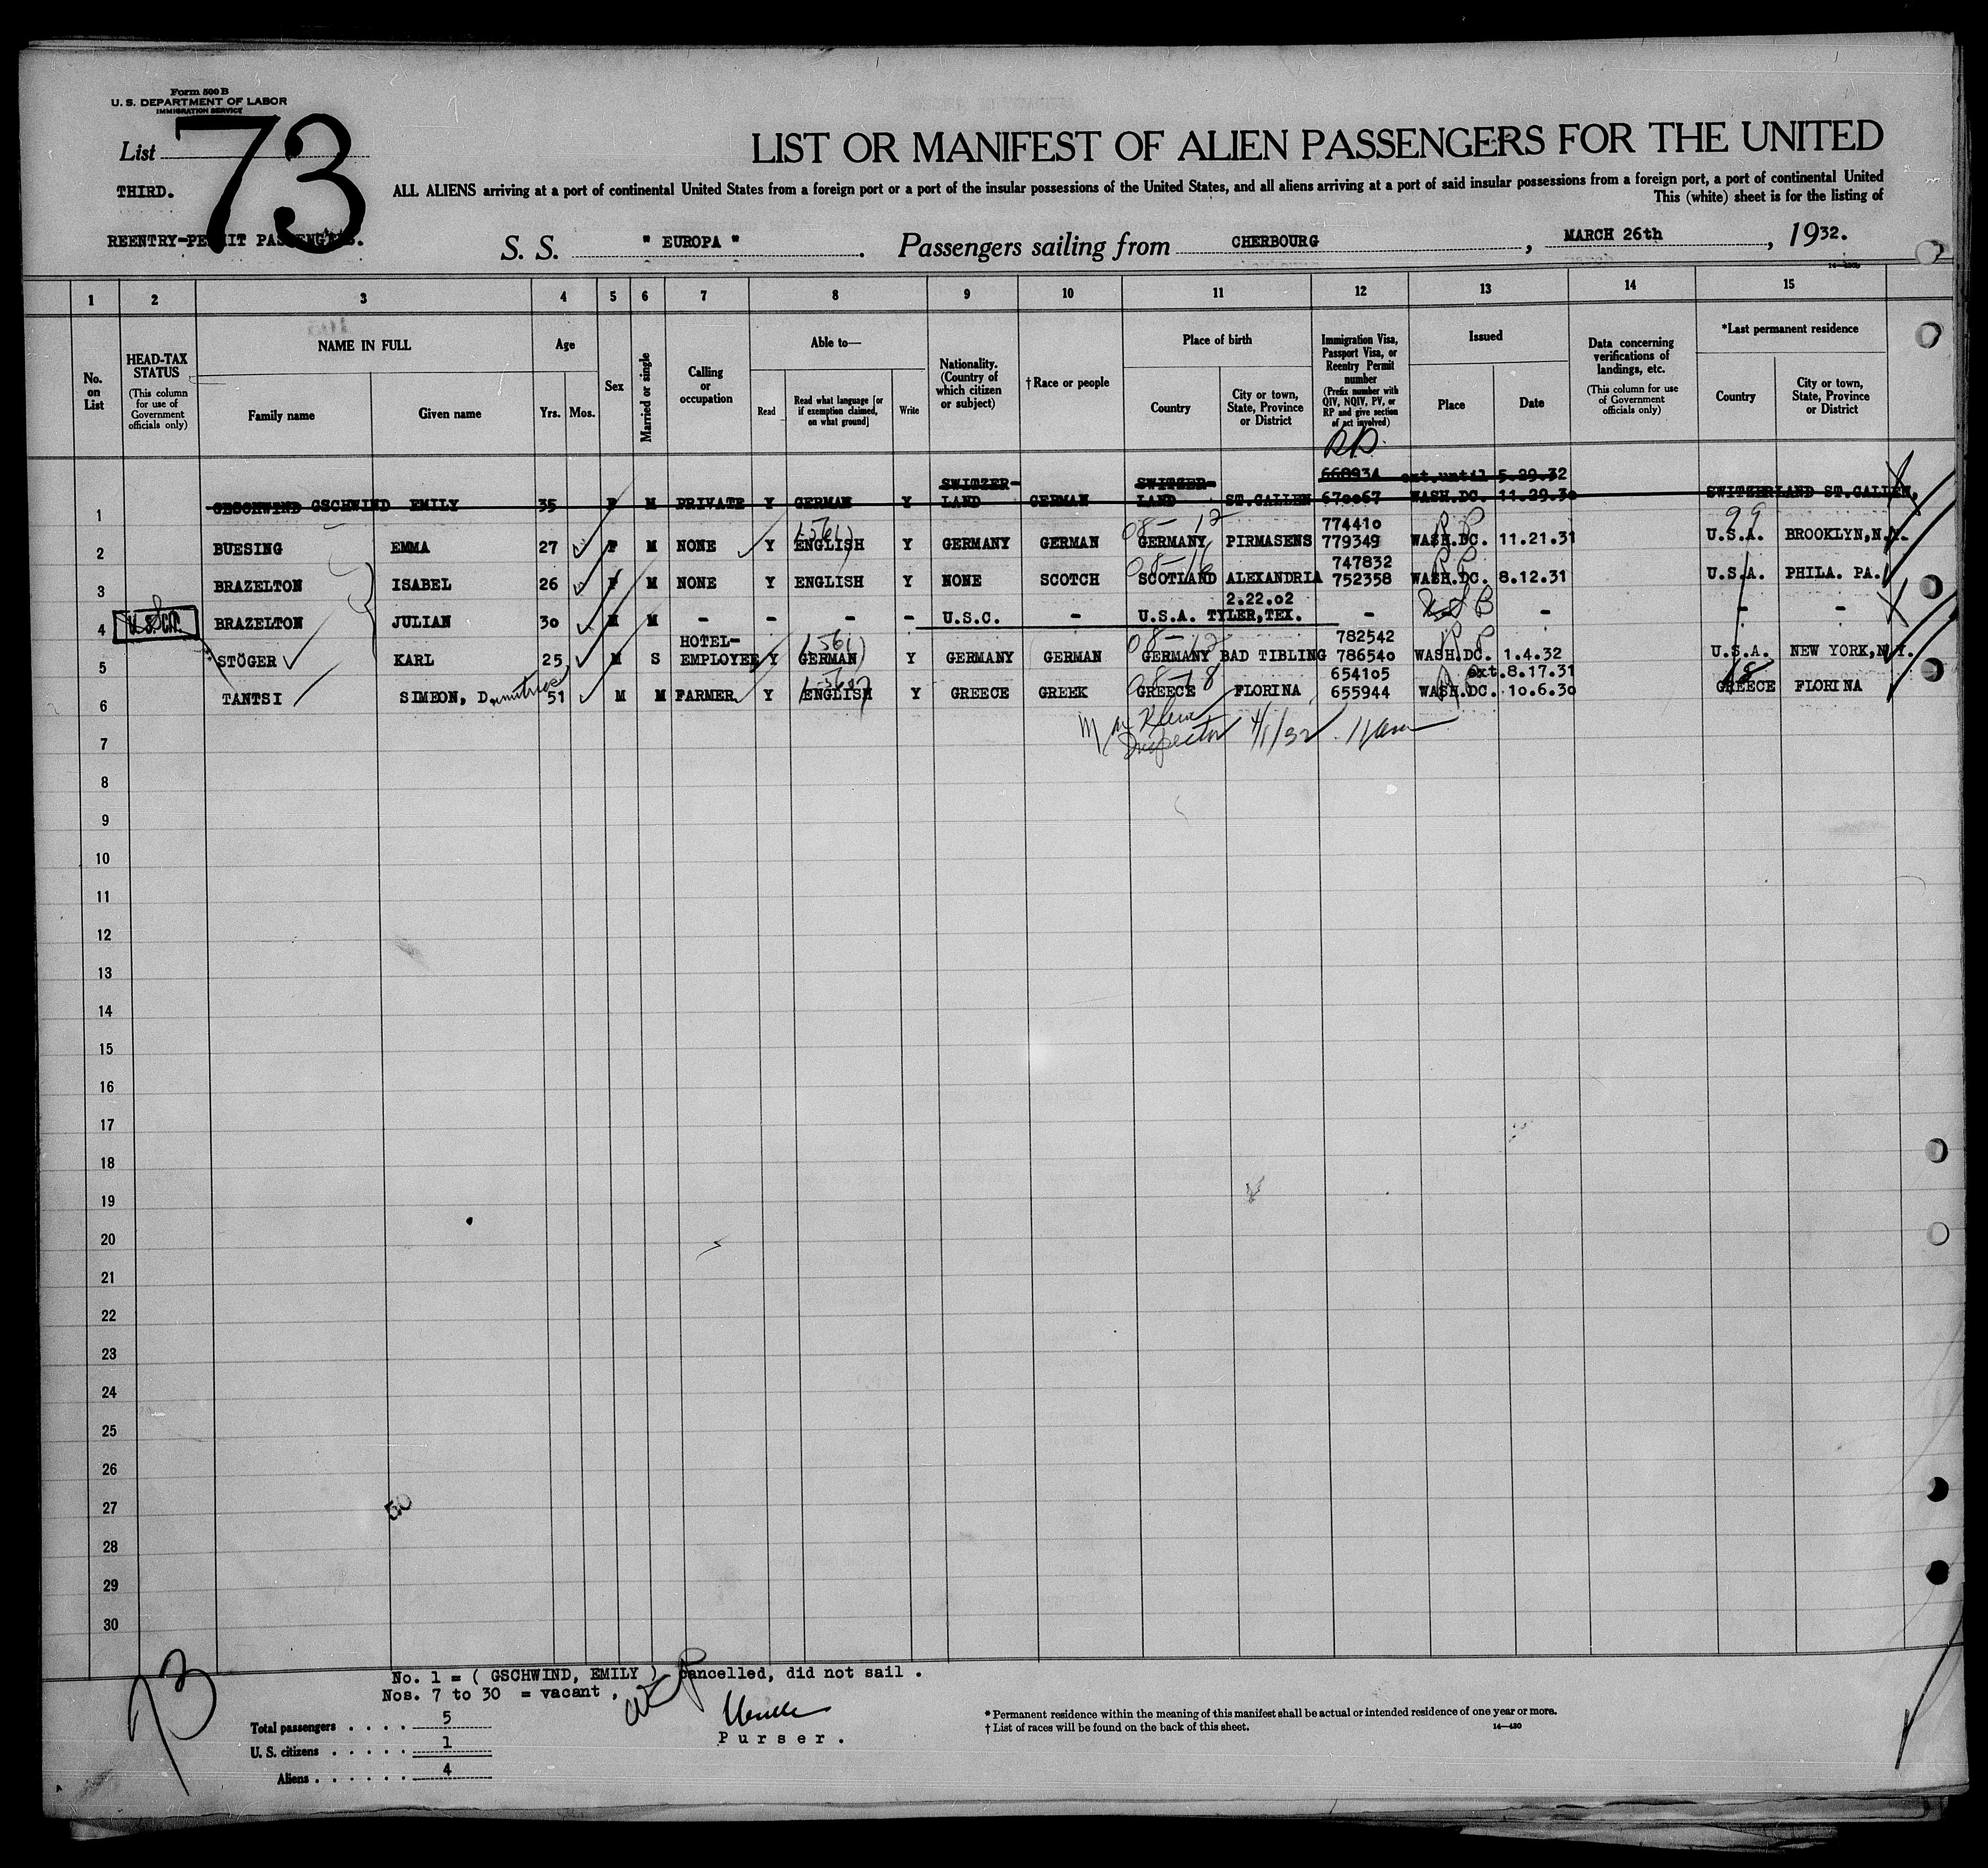 Form 500 B
U. S. DEPARTMENT OF LABOR
IMMIGRATION SERVICE
List 73
THIRD.
REENTRY-PERMIT PASSENGERS.
LIST OR MANIFEST OF ALIEN PASSENGERS FOR THE UNITED
ALL ALIENS arriving at a port of continental United States from a foreign port or a port of the insular possessions of the United States, and all aliens arriving at a port of said insular possessions from a foreign port, a port of continental United
This (white) sheet is for the listing of
S. S. " EUROPA " . Passengers sailing from CHERBOURG , MARCH 26th , 1932.
1 2 3 4 5 6 7 8 9 10 11 12 13 14 15
No. on List
HEAD-TAX STATUS
(This column for use of Government officials only)
NAME IN FULL
Family name
Given name
Age
Yrs.
Mos.
Sex
Married or single
Calling or occupation
Able to—
Read
Read what language [or if exemption claimed, on what ground]
Write
Nationality. (Country of which citizen or subject)
† Race or people
Place of birth
Country
City or town, State, Province or District
Immigration Visa, Passport Visa, or Reentry Permit number
(Prefix number with QIV, NQIV, PV, or RP and give section of act involved)
RP.
Issued
Place
Date
Data concerning verifications of landings, etc.
(This column for use of Government officials only)
*Last permanent residence
Country
City or town, State, Province or District
SWITZER- SWITZER- 66893A ext.until 5.29.32
1 GESCHWIND GSCHWIND EMILY 35 F M PRIVATE Y GERMAN Y LAND GERMAN LAND ST.GALLEN 670067 WASH.DC. 11.29.30 SWITZERLAND ST.GALLEN,
(-561) 08-12 774410 RP 99
2 BUESING EMMA 27 F M NONE Y ENGLISH Y GERMANY GERMAN GERMANY PIRMASENS 779349 WASH.DC. 11.21.31 U.S.A. BROOKLYN,N.Y.
08-16 747832 RP
3 BRAZELTON ISABEL 26 F M NONE Y ENGLISH Y NONE SCOTCH SCOTLAND ALEXANDRIA 752358 WASH.DC. 8.12.31 U.S.A. PHILA. PA.
2.22.02
4 U.S.C. BRAZELTON JULIAN 30 M M - - - - U.S.C. - U.S.A. TYLER,TEX. - - - -
HOTEL- (-561) 08-12 782542 RP
5 STÖGER KARL 25 M S EMPLOYEE Y GERMAN Y GERMANY GERMAN GERMANY BAD TIBLING 786540 WASH.DC. 1.4.32 U.S.A. NEW YORK,N.Y.
08-18 654105 ext.8.17.31 18
6 TANTSI SIMEON, Dimitrios 51 M M FARMER Y ENGLISH Y GREECE GREEK GREECE FLORINA 655944 WASH.DC. 10.6.30 GREECE FLORINA
7
Inspector 4/1/32 11am
8
9
10
11
12
13
14
15
16
17
18
19
20
21
22
23
24
25
26
27
28
29
30
73
No. 1 = ( GSCHWIND, EMILY ) cancelled, did not sail .
Nos. 7 to 30 = vacant ,
Total passengers . . . . 5
U. S. citizens . . . . . 1
Aliens . . . . . . 4
Purser.
* Permanent residence within the meaning of this manifest shall be actual or intended residence of one year or more.
† List of races will be found on the back of this sheet.
14—430